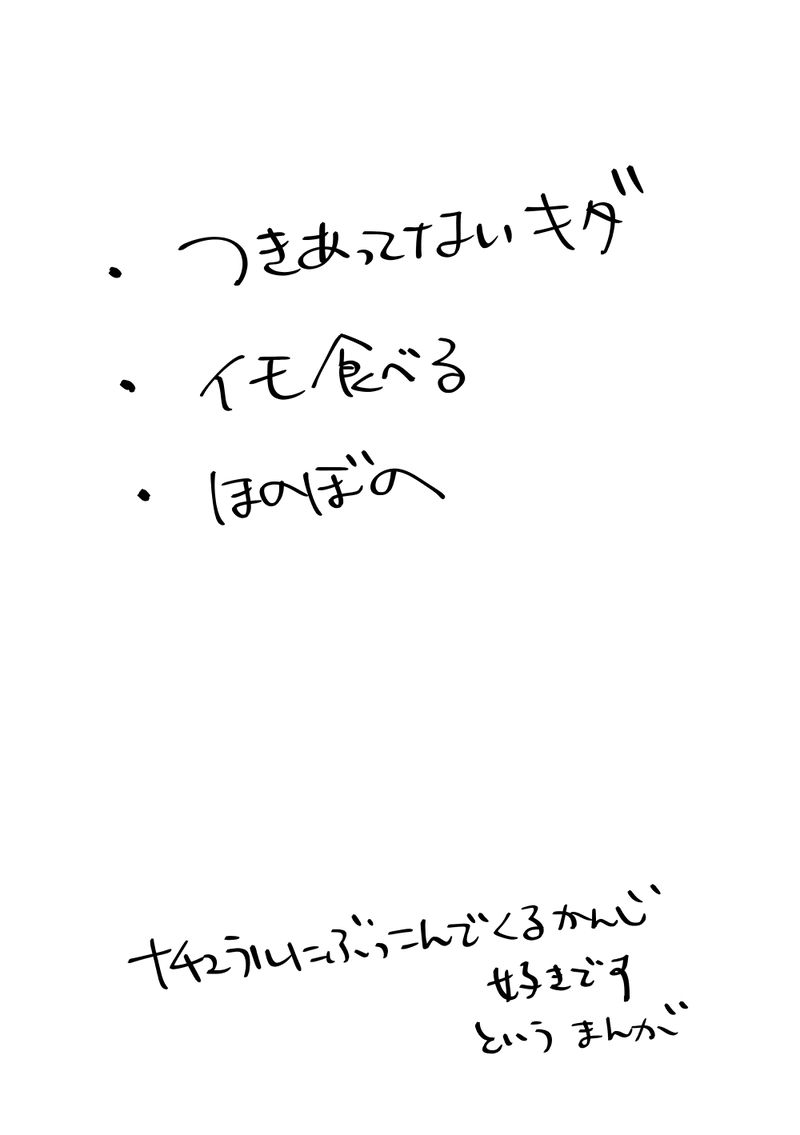 ・つきあってないキダ
・イモ食べる
・ほのぼの
ナチュラルにぶっこんでくるかんじ
好きです
という まんが